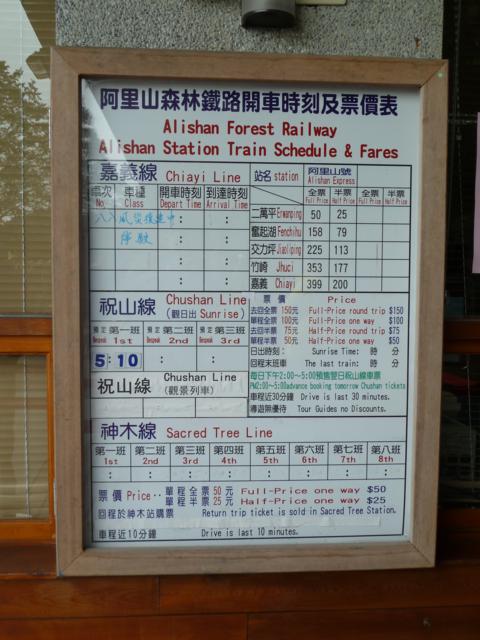 阿里山森林鐵路開車時刻及票價表
Alishan Forest Railway
Alishan Station Train Schedule & Fares
嘉義線 Chiayi Line
站名 station 阿里山號 Alishan Express
車次 車種 開車時刻 到達時刻
No. Class Depart Time Arrival Time
全票 半票 全票 半票
Full Price Half Price Full Price Half Price
八八風災復建中
停駛
: :
: :
: :
: :
二萬平 Erwanping 50 25
奮起湖 Fenchihu 158 79
交力坪 Jiaoliping 225 113
竹崎 Jhuci 353 177
嘉義 Chiayi 399 200
祝山線 Chushan Line
(觀日出 Sunrise)
預定 第一班 預定 第二班 預定 第三班
Bespeak 1st Bespeak 2nd Bespeak 3rd
5:10
票價 Price
去回全票 150元 Full-Price round trip $150
單程全票 100元 Full-Price one way $100
去回半票 75元 Half-Price round trip $75
單程半票 50元 Half-Price one way $50
日出時刻: Sunrise Time: 時 分
回程末班車 The last train: 時 分
祝山線 Chushan Line
(觀景列車)
每日下午2:00~5:00預售翌日祝山線車票
PM2:00~5:00advance booking tomorrow Chushan tickets
車程近30分鐘 Drive is last 30 minutes.
導遊無優待 Tour Guides no Discounts.
神木線 Sacred Tree Line
第一班 第二班 第三班 第四班 第五班 第六班 第七班 第八班
1st 2nd 3rd 4th 5th 6th 7th 8th
: : : : : : : :
票價 Price‥單程全票 50 元 Full-Price one way $50
單程半票 25 元 Half-Price one way $25
回程於神木站購票 Return trip ticket is sold in Sacred Tree Station.
車程近10分鐘 Drive is last 10 minutes.